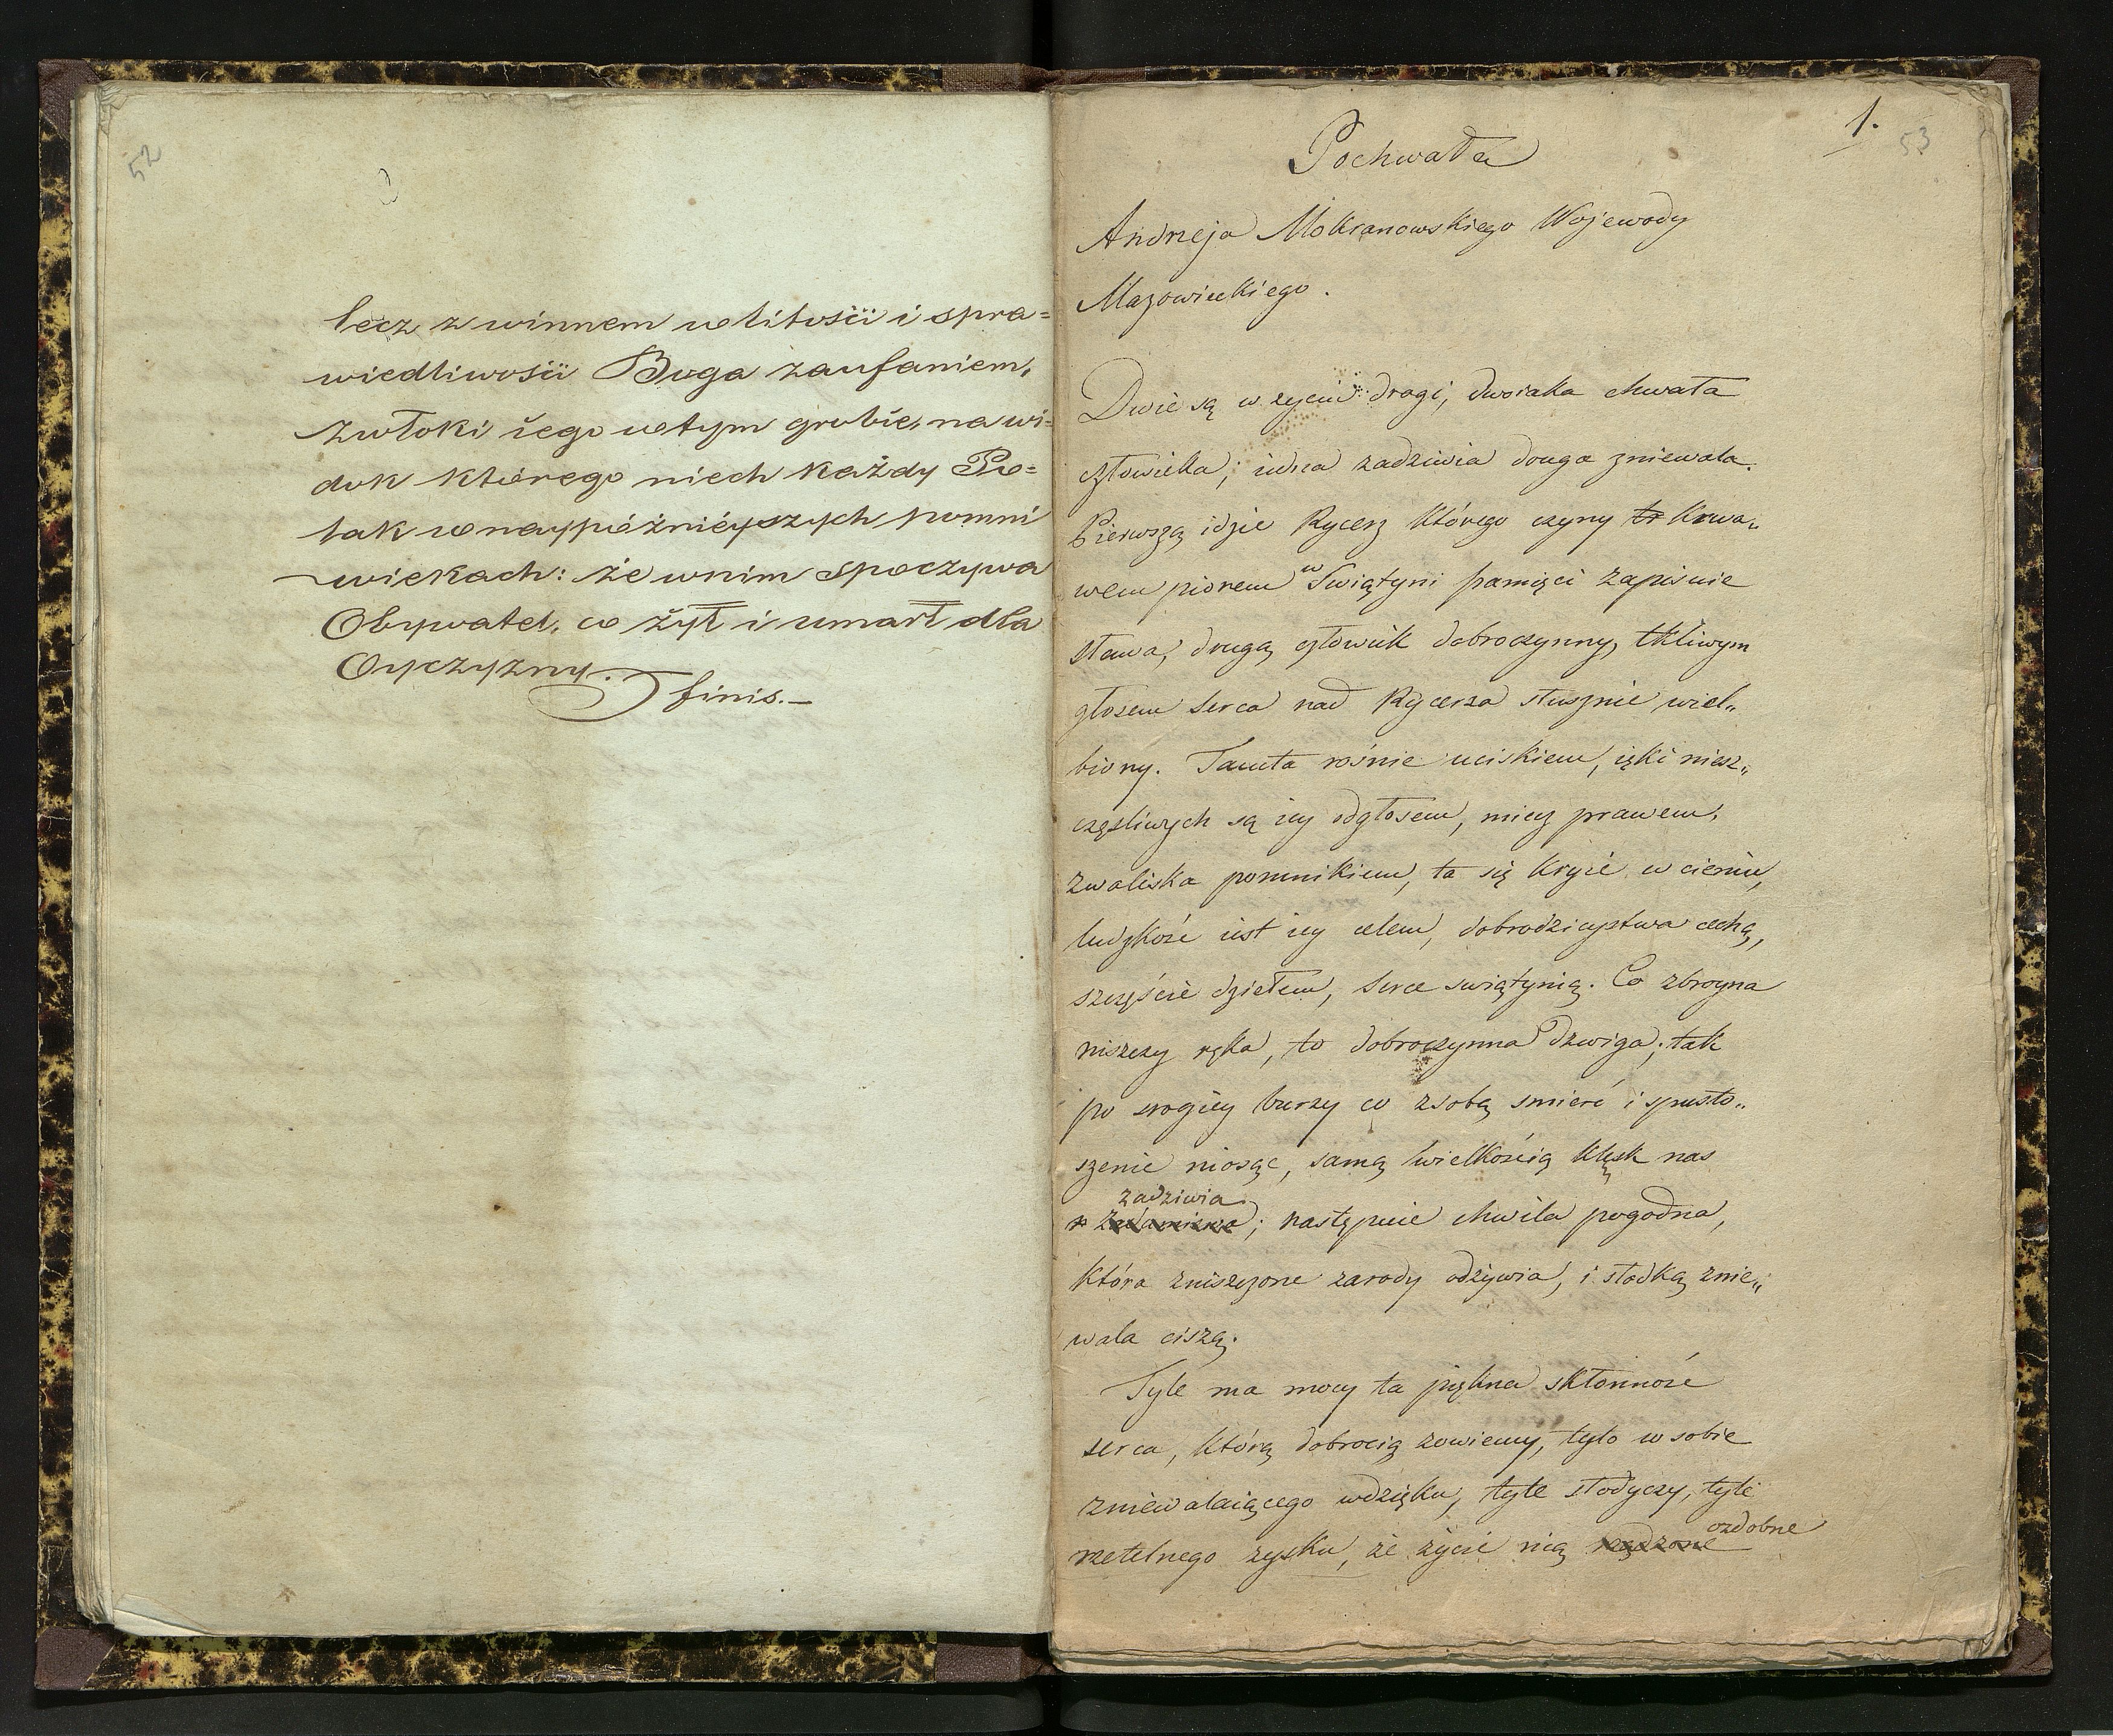 52
lecz z winnem w litości i spra=
wiedliwości Boga zaufaniem,
zwłoki iego w tym grobie, na wi=
dok którego niech każdy Po=
lak w naypóźnieyszych pomni
wiekach: że wnim spoczywa
Obywatel, co żył i umarł dla
Oyczyzny.
finis.—
1.
53
Pochwała
Andrzeja Mokranowskiego Wojewody
Mazowieckiego.
Dwie są w życiu drogi, dwoiaka chwała
człowieka; iedna zadziwia druga zniewala.
Pierwszą idzie Rycerz którego czyny tr krwa„
wem piorem w Swiątyni pamięci zapisuie
sława, drugą człowiek dobroczynny, tkliwym
głosem serca nad Rycerza słusznie wiel„
biony. Tamta rośnie uciskiem, ięki niesz„
częsliwych są iey odgłosem, miecz prawem,
zwaliska pomnikiem, ta się kryie w cieniu,
ludzkość iest iey celem, dobrodzieystwa cechą,
szczęście dziełem, serce swiątynią. Co zbroyna
niszczy ręka, to dobroczynna dzwiga; tak
po srogiey burzy co zsobą smierć i spusto„
szenie niosąc, samą wielkością klęsk nas
zadziwia
; następuie chwila pogodna,
która zniszczone zarody odżywia, i słodką znie„
wala ciszą.
Tyle ma mocy ta piękna skłonność
serca, którą dobrocią zowiemy, tyle w sobie
zniewalaiącego wdzięku, tyle słodyczy, tyle
rzetelnego zysku, że życie nią rządzone ozdobne